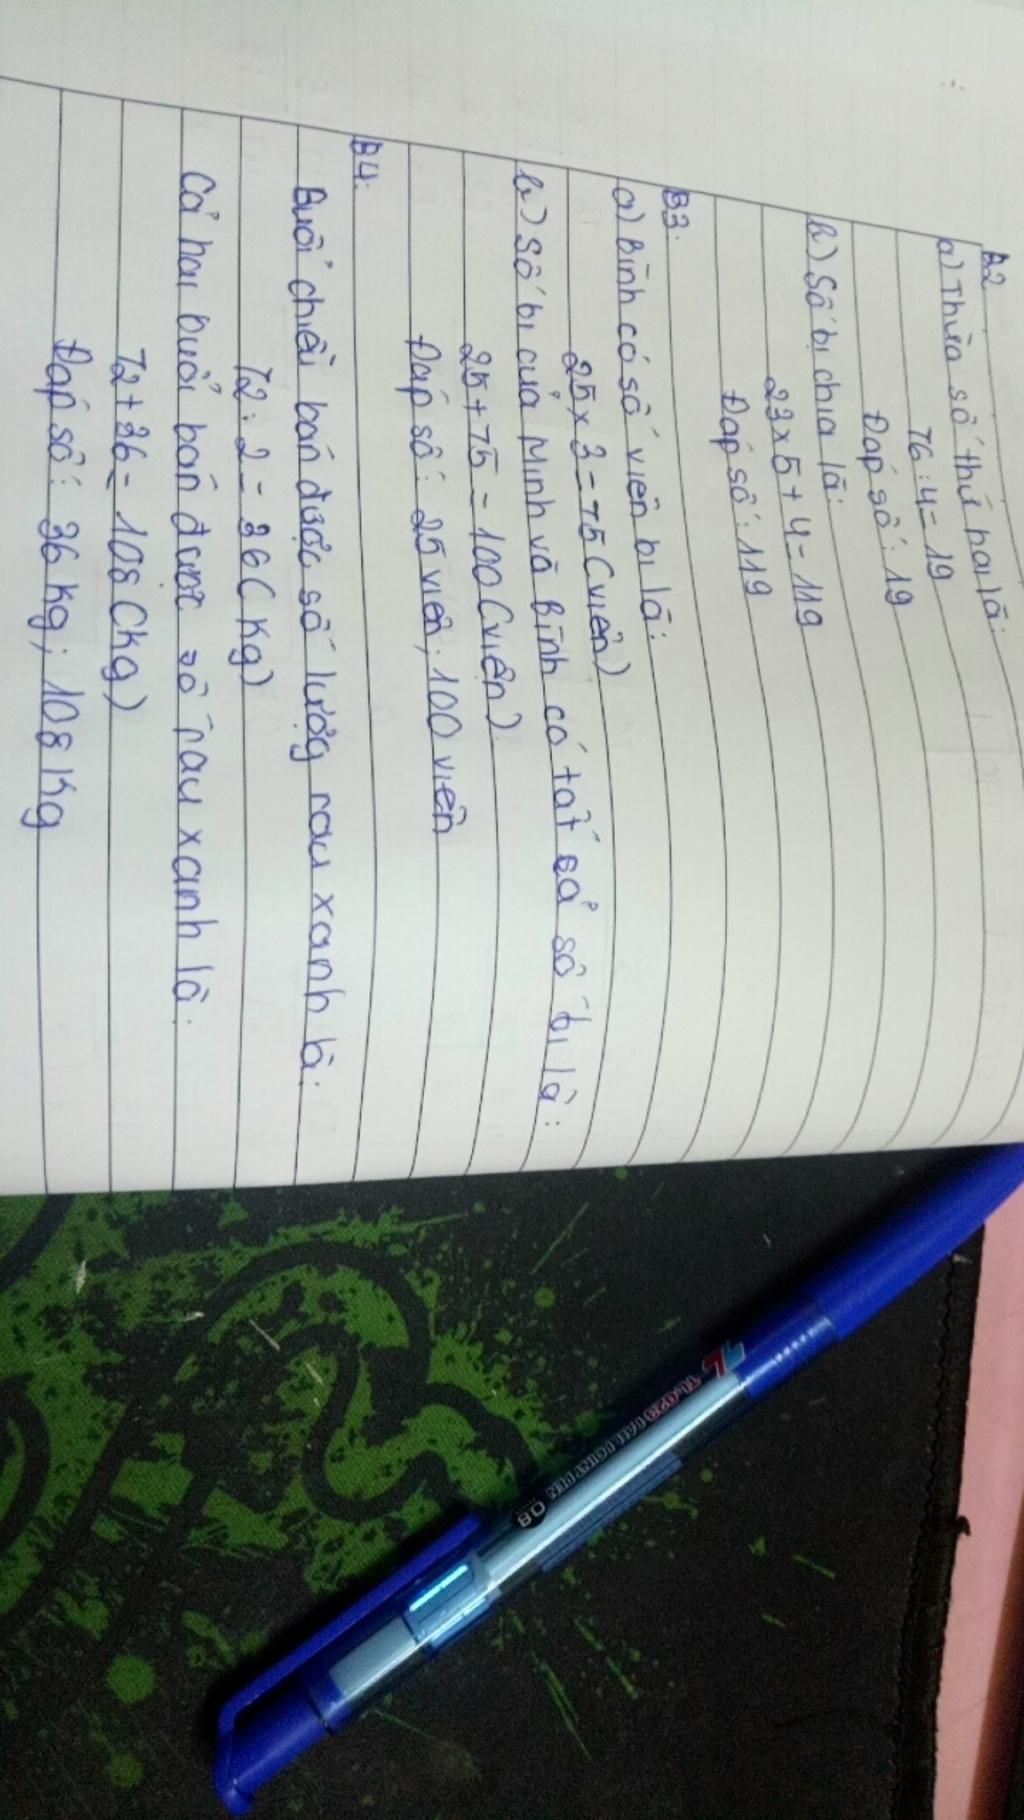 B2
a) Thừa số thứ hai là:
76 : 4 = 19
Đáp số: 19
b) Số bị chia là:
23 x 5 + 4 = 119
Đáp số: 119
B3.
a) Bình có số viên bi là:
25 x 3 = 75 (viên)
b) Số bi của Minh và Bình có tất cả số bi là:
25 + 75 = 100 (viên)
Đáp số: 25 viên; 100 viên
B4:
Buổi chiều bán được số lượng rau xanh là:
72 : 2 = 36 (kg)
Cả hai buổi bán được số rau xanh là:
72 + 36 = 108 (kg)
Đáp số: 36 kg; 108 kg
TL
TL-023 BALL POINT PEN 0.8